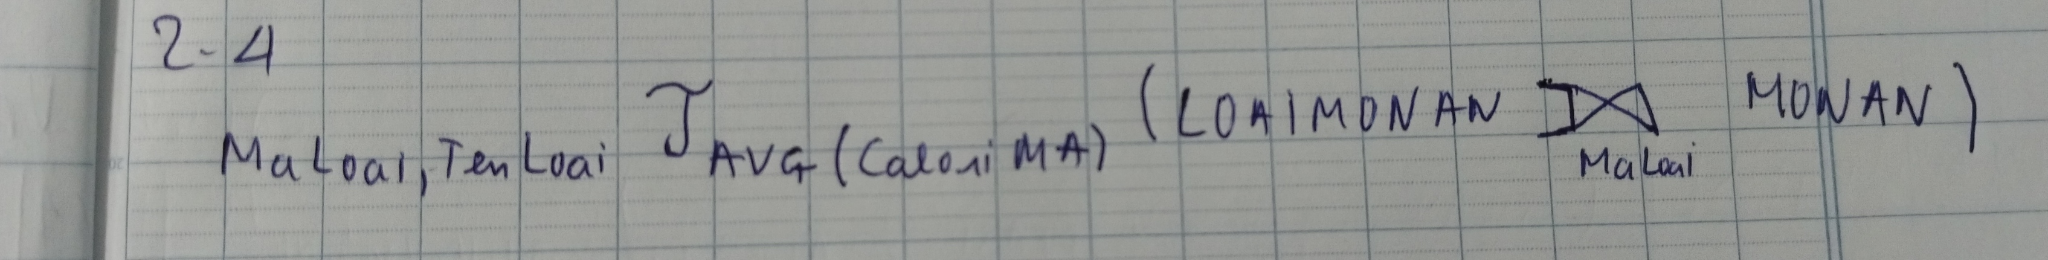 2-4
MaLoai, TenLoai ℑ AVG(CaloriMA) (LOAIMONAN ⟕ MaLoai MONAN)